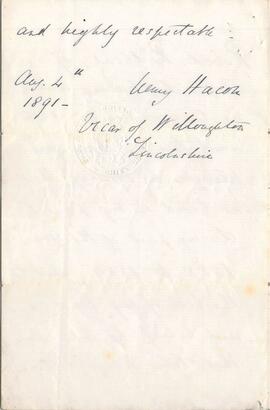 and highly respectable -
Aug. 4th
1891 -
Henry Hacon
Vicar of Willoughton
Lincolnshire